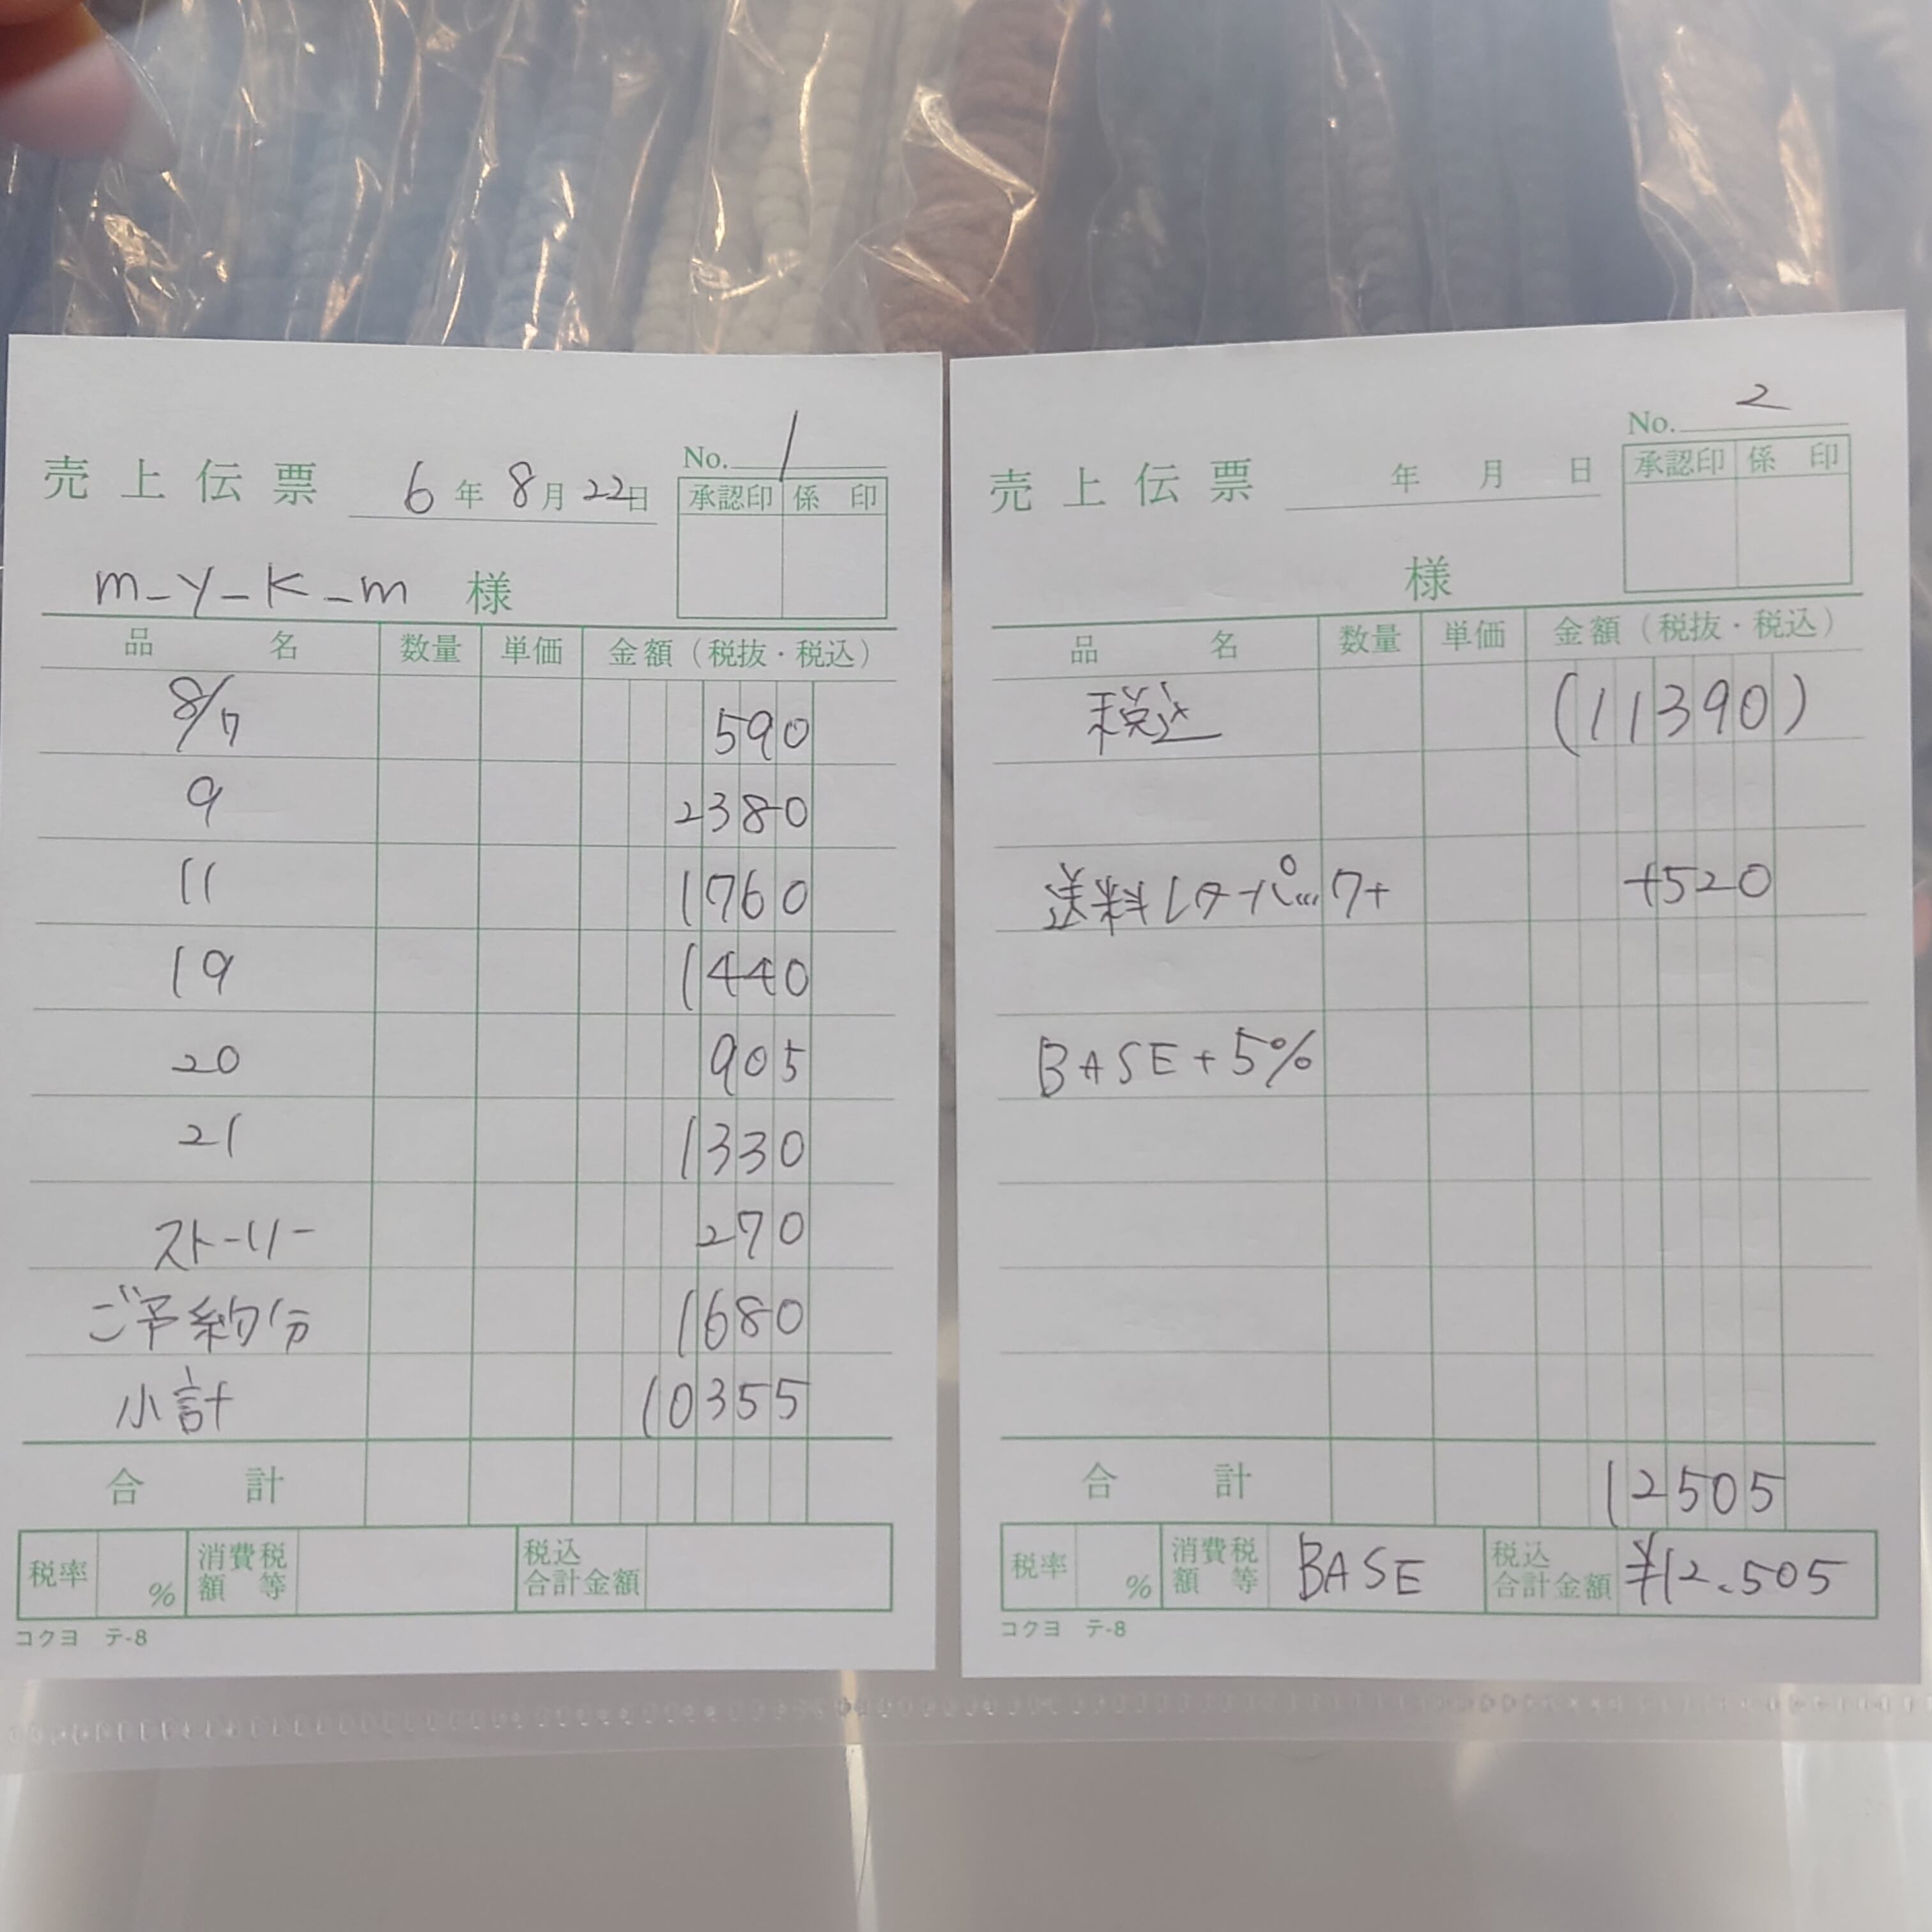 No. 1
売上伝票 6年8月22日
承認印 係印
m-y-k-m 様
品名 数量 単価 金額（税抜・税込）
8/7 590
9 2380
11 1760
19 1440
20 905
21 1330
ストーリー 270
ご予約分 1680
小計 10355
合計
税率 % 消費税額等 税込合計金額
コクヨ テ-8
No. 2
売上伝票 年 月 日
承認印 係印
様
品名 数量 単価 金額（税抜・税込）
税込 (11390)
送料レターパック+ +520
BASE+5%
合計 12505
税率 % 消費税額等 BASE 税込合計金額 ¥12.505
コクヨ テ-8